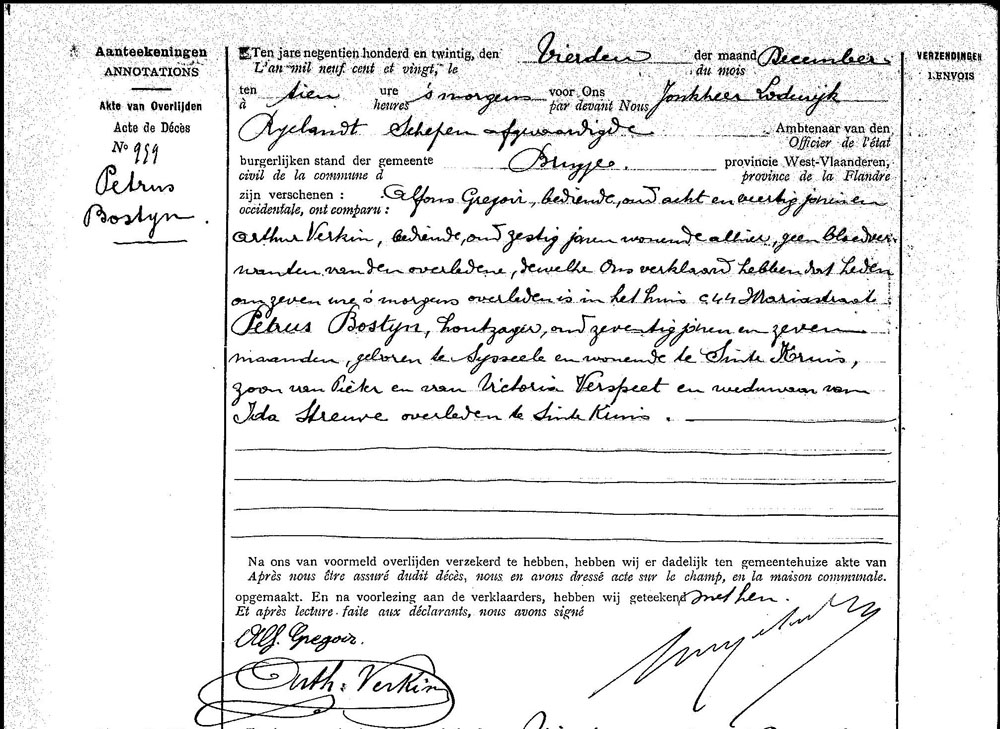 Aanteekeningen
ANNOTATIONS
Akte van Overlijden
Acte de Décès
No 959
Petrus
Bostyn.
Ten jare negentien honderd en twintig, den Vierden der maand December
L'an mil neuf cent et vingt, le du mois
ten tien ure 's morgens voor Ons Jonkheer Lodewijk
à heures par devant Nous
Ryelandt Schepen afgevaardigde Ambtenaar van den
Officier de l'état
burgerlijken stand der gemeente Brugge. provincie West-Vlaanderen,
civil de la commune d province de la Flandre
zijn verschenen : Alfons Gregoir, bediende, oud acht en veertig jaren en
occidentale, ont comparu :
Arthur Verkin, bediende, oud zestig jaren wonende alhier, geen bloedver-
wanten van den overledene, dewelke Ons verklaard hebben dat heden
om zeven ure 's morgens overleden is in het huis C 44 Mariastraat
Petrus Bostyn, houtzager, oud zeventig jaren en zeven
maanden, geboren te Sysseele en wonende te Sinte Kruis,
zoon van Pieter en van Victoria Verspeet en weduwaar van
Ida Streuve overleden te Sinte Kruis.
Na ons van voormeld overlijden verzekerd te hebben, hebben wij er dadelijk ten gemeentehuize akte van
Après nous être assuré dudit décès, nous en avons dressé acte sur le champ, en la maison communale.
opgemaakt. En na voorlezing aan de verklaarders, hebben wij geteekend met hen.
Et après lecture faite aux déclarants, nous avons signé
Alf. Gregoir.
Arth. Verkin
VERZENDINGEN
RENVOIS